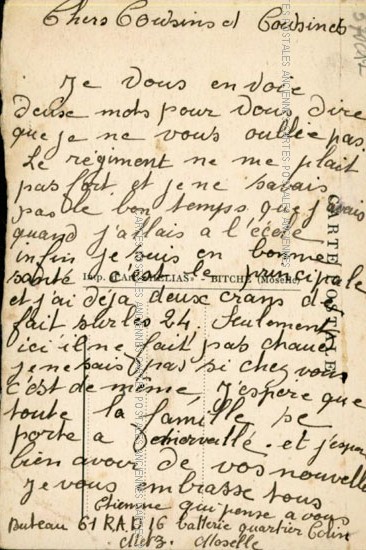 Chers Cousins et Cousines
Je vous envoie
deux mots pour vous dire
que je ne vous oublie pas
Le régiment ne me plait
pas fort et je ne savais
pas le bon temps que j'avais
quand j'allais à l'école
enfin je suis en bonne
santé c'est le principale
et j'ai déja deux crans de
fait sur les 24. Seulement
ici il ne fait pas chaud
je ne sais pas si chez vous
c'est de même, J'espère que
toute la famille se
porte a merveille. et j'espère
bien avoir de vos nouvelles
Je vous embrasse tous
Etienne qui pense a vous
61 R.A.D 16 batterie quartier Colin
Metz. Moselle
CARTE POSTALE
Imp. BITCHE (Moselle)
CARTES POSTALES ANCIENNES